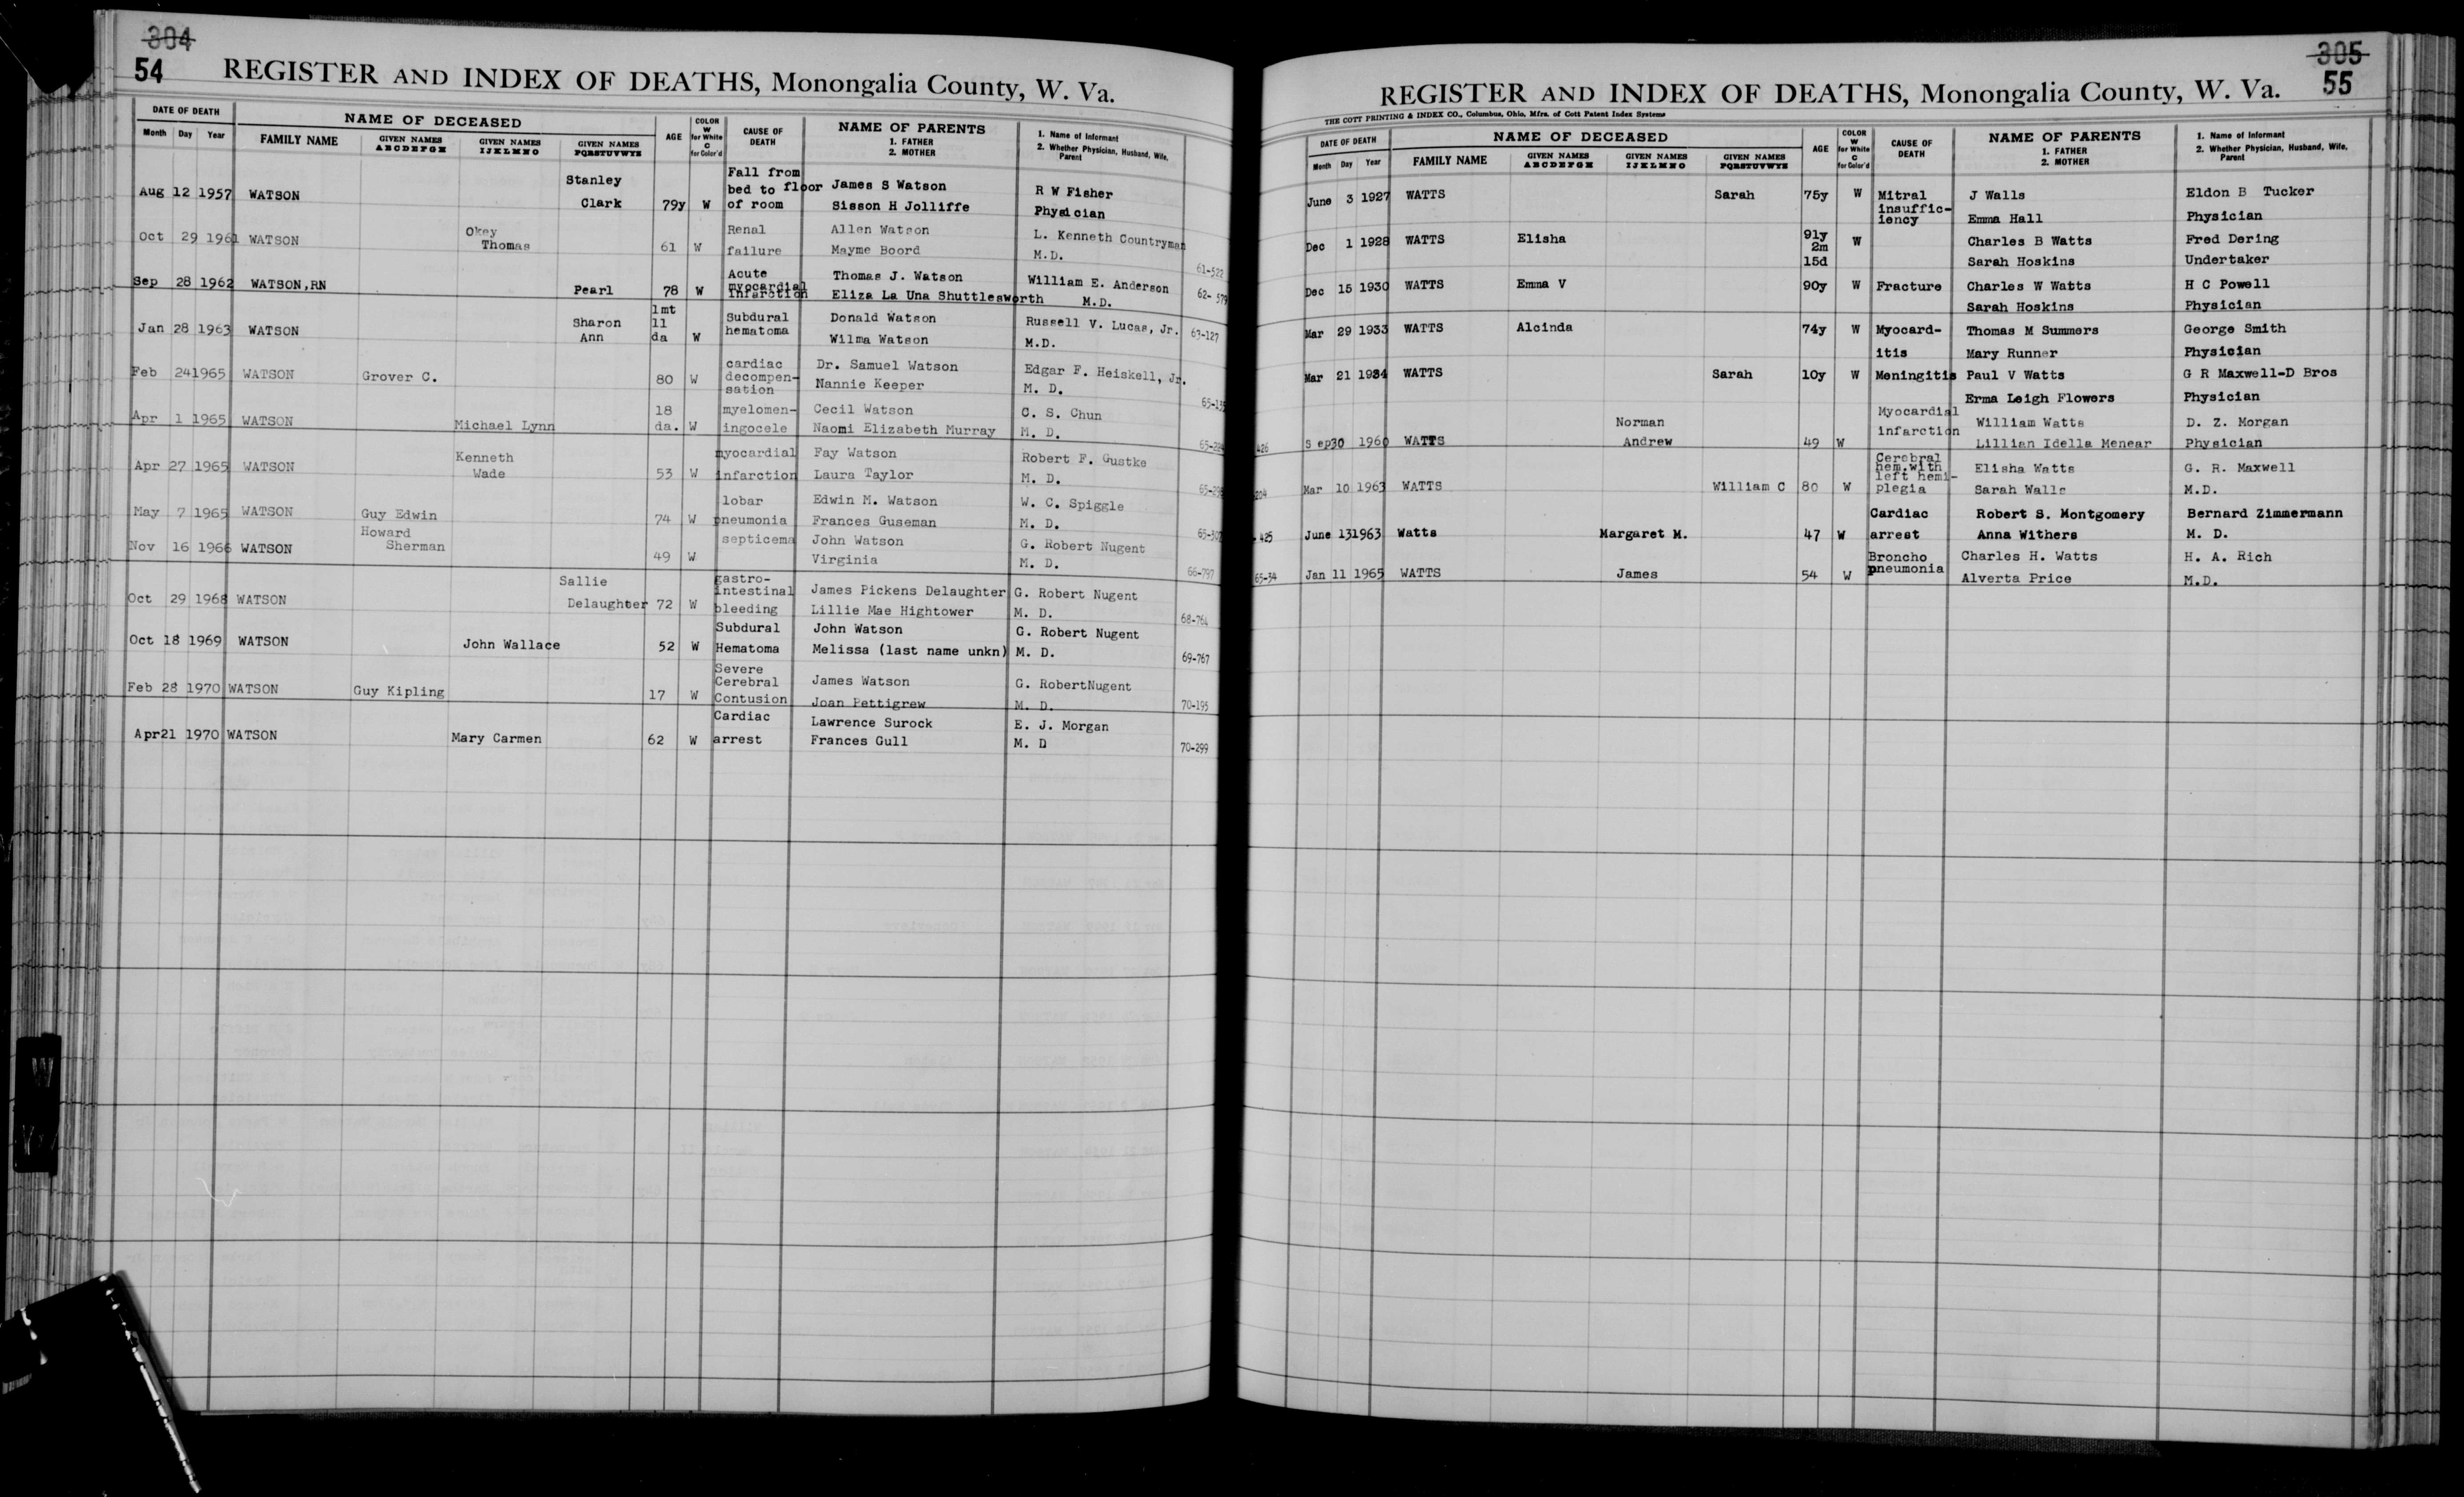 304
54 REGISTER AND INDEX OF DEATHS, Monongalia County, W. Va.
DATE OF DEATH
Month Day Year
NAME OF DECEASED
FAMILY NAME
GIVEN NAMES ABCDEFGH
GIVEN NAMES IJKLMNO
GIVEN NAMES PQRSTUVWYZ
AGE
COLOR W for White C for Color'd
CAUSE OF DEATH
NAME OF PARENTS
1. FATHER
2. MOTHER
1. Name of Informant
2. Whether Physician, Husband, Wife, Parent
Aug 12 1957 WATSON Stanley Clark 79y W Fall from bed to floor of room James S Watson Sisson H Jolliffe R W Fisher Physician
Oct 29 1961 WATSON Okey Thomas 61 W Renal failure Allen Watson Mayme Boord L. Kenneth Countryman M.D. 61-522
Sep 28 1962 WATSON,RN Pearl 78 W Acute myocardial infarction Thomas J. Watson Eliza La Una Shuttlesworth William E. Anderson M.D. 62-579
Jan 28 1963 WATSON Sharon Ann 1mt 11 da W Subdural hematoma Donald Watson Wilma Watson Russell V. Lucas, Jr. M.D. 63-127
Feb 24 1965 WATSON Grover C. 80 W cardiac decompen-sation Dr. Samuel Watson Nannie Keeper Edgar F. Heiskell, Jr. M. D. 65-135
Apr 1 1965 WATSON Michael Lynn 18 da. W myelomen-ingocele Cecil Watson Naomi Elizabeth Murray C. S. Chun M. D. 65-224
Apr 27 1965 WATSON Kenneth Wade 53 W myocardial infarction Fay Watson Laura Taylor Robert F. Gustke M. D.
May 7 1965 WATSON Guy Edwin 74 W lobar pneumonia Edwin M. Watson Frances Guseman W. C. Spiggle M. D.
Nov 16 1966 WATSON Howard Sherman 49 W septicema John Watson Virginia G. Robert Nugent M. D. 66-797
Oct 29 1968 WATSON Sallie Delaughter 72 W gastro-intestinal bleeding James Pickens Delaughter Lillie Mae Hightower G. Robert Nugent M. D. 68-764
Oct 18 1969 WATSON John Wallace 52 W Subdural Hematoma John Watson Melissa (last name unkn) G. Robert Nugent M. D. 69-767
Feb 28 1970 WATSON Guy Kipling 17 W Severe Cerebral Contusion James Watson Joan Pettigrew G. RobertNugent M. D. 70-195
Apr21 1970 WATSON Mary Carmen 62 W Cardiac arrest Lawrence Surock Frances Gull E. J. Morgan M. D 70-299
305
REGISTER AND INDEX OF DEATHS, Monongalia County, W. Va. 55
THE COTT PRINTING & INDEX CO., Columbus, Ohio, Mfrs. of Cott Patent Index Systems
DATE OF DEATH
Month Day Year
NAME OF DECEASED
FAMILY NAME
GIVEN NAMES ABCDEFGH
GIVEN NAMES IJKLMNO
GIVEN NAMES PQRSTUVWYZ
AGE
COLOR W for White C for Color'd
CAUSE OF DEATH
NAME OF PARENTS
1. FATHER
2. MOTHER
1. Name of Informant
2. Whether Physician, Husband, Wife, Parent
June 3 1927 WATTS Sarah 75y W Mitral insuffic-iency J Walls Emma Hall Eldon B Tucker Physician
Dec 1 1928 WATTS Elisha 91y 2m 15d W Charles B Watts Sarah Hoskins Fred Dering Undertaker
Dec 15 1930 WATTS Emma V 90y W Fracture Charles W Watts Sarah Hoskins H C Powell Physician
Mar 29 1933 WATTS Alcinda 74y W Myocard-itis Thomas M Summers Mary Runner George Smith Physician
Mar 21 1934 WATTS Sarah 10y W Meningitis Paul V Watts Erma Leigh Flowers G R Maxwell-D Bros Physician
426 S ep30 1960 WATTS Norman Andrew 49 W Myocardial infarction William Watts Lillian Idella Menear D. Z. Morgan Physician
204 Mar 10 1963 WATTS William C 80 W Cerebral hem.with left hemi-plegia Elisha Watts Sarah Walls G. R. Maxwell M.D.
425 June 131963 Watts Margaret M. 47 W Cardiac arrest Robert S. Montgomery Anna Withers Bernard Zimmermann M. D.
65-34 Jan 11 1965 WATTS James 54 W Broncho pneumonia Charles H. Watts Alverta Price H. A. Rich M.D.
W